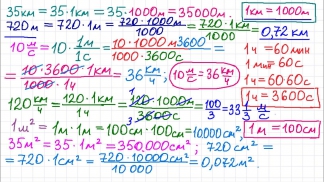 35км = 35·1км = 35·1000м = 35000м.
1км = 1000м
720м = 720·1м = 720·1000м/1000 = 720·1км/1000 = 0,72км
10 м/с = 10·1м/1с = 10·1000м·3600/1000·3600с =
1ч = 60мин
1мин = 60с
= 10·3600·1км/1000·1ч = 36 км/ч; 10 м/с = 36 км/ч
1ч = 60·60с
1ч = 3600с
120 км/ч = 120·1км/1ч = 120·1000м/3600с = 100/3 = 33 1/3 м/с
1м² = 1м·1м = 100см·100см = 10000см²;
1м = 100см
35м² = 35·1м² = 350,000см²; 720см² =
= 720·1см² = 720·10000см²/10 000 = 0,072м².